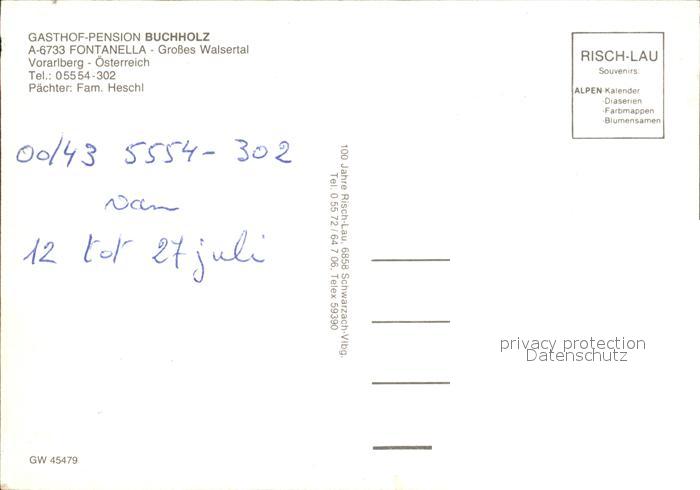 GASTHOF-PENSION BUCHHOLZ
A-6733 FONTANELLA - Großes Walsertal
Vorarlberg - Österreich
Tel.: 05554-302
Pächter: Fam. Heschl
RISCH-LAU
Souvenirs:
ALPEN-Kalender
-Diaserien
-Farbmappen
-Blumensamen
00/43 5554-302
van
12 tot 27 juli
100 Jahre Risch-Lau, 6858 Schwarzach-Vlbg.
Tel. 0 55 72/64 7 06, Telex 59390
privacy protection
Datenschutz
GW 45479